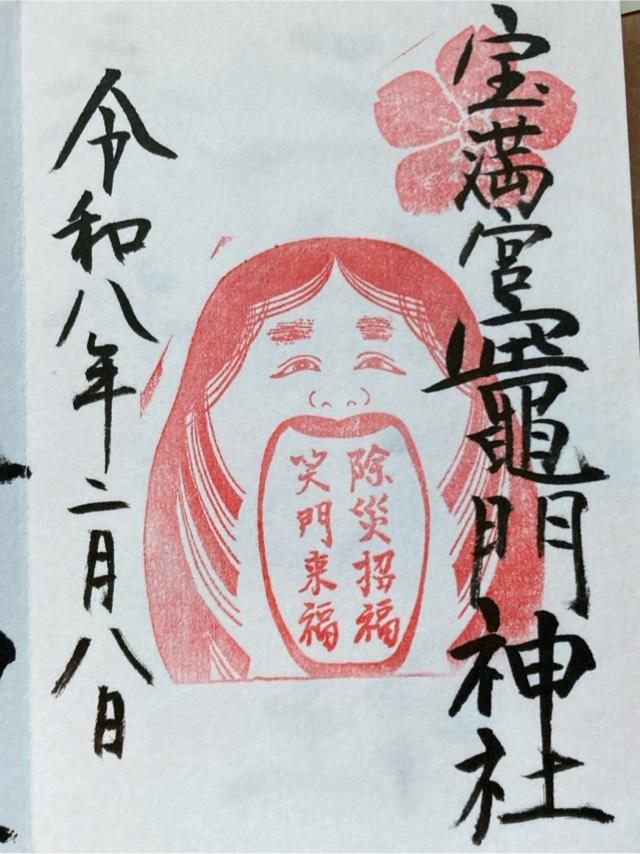 宝満宮竈門神社
除災招福
笑門来福
令和八年二月八日